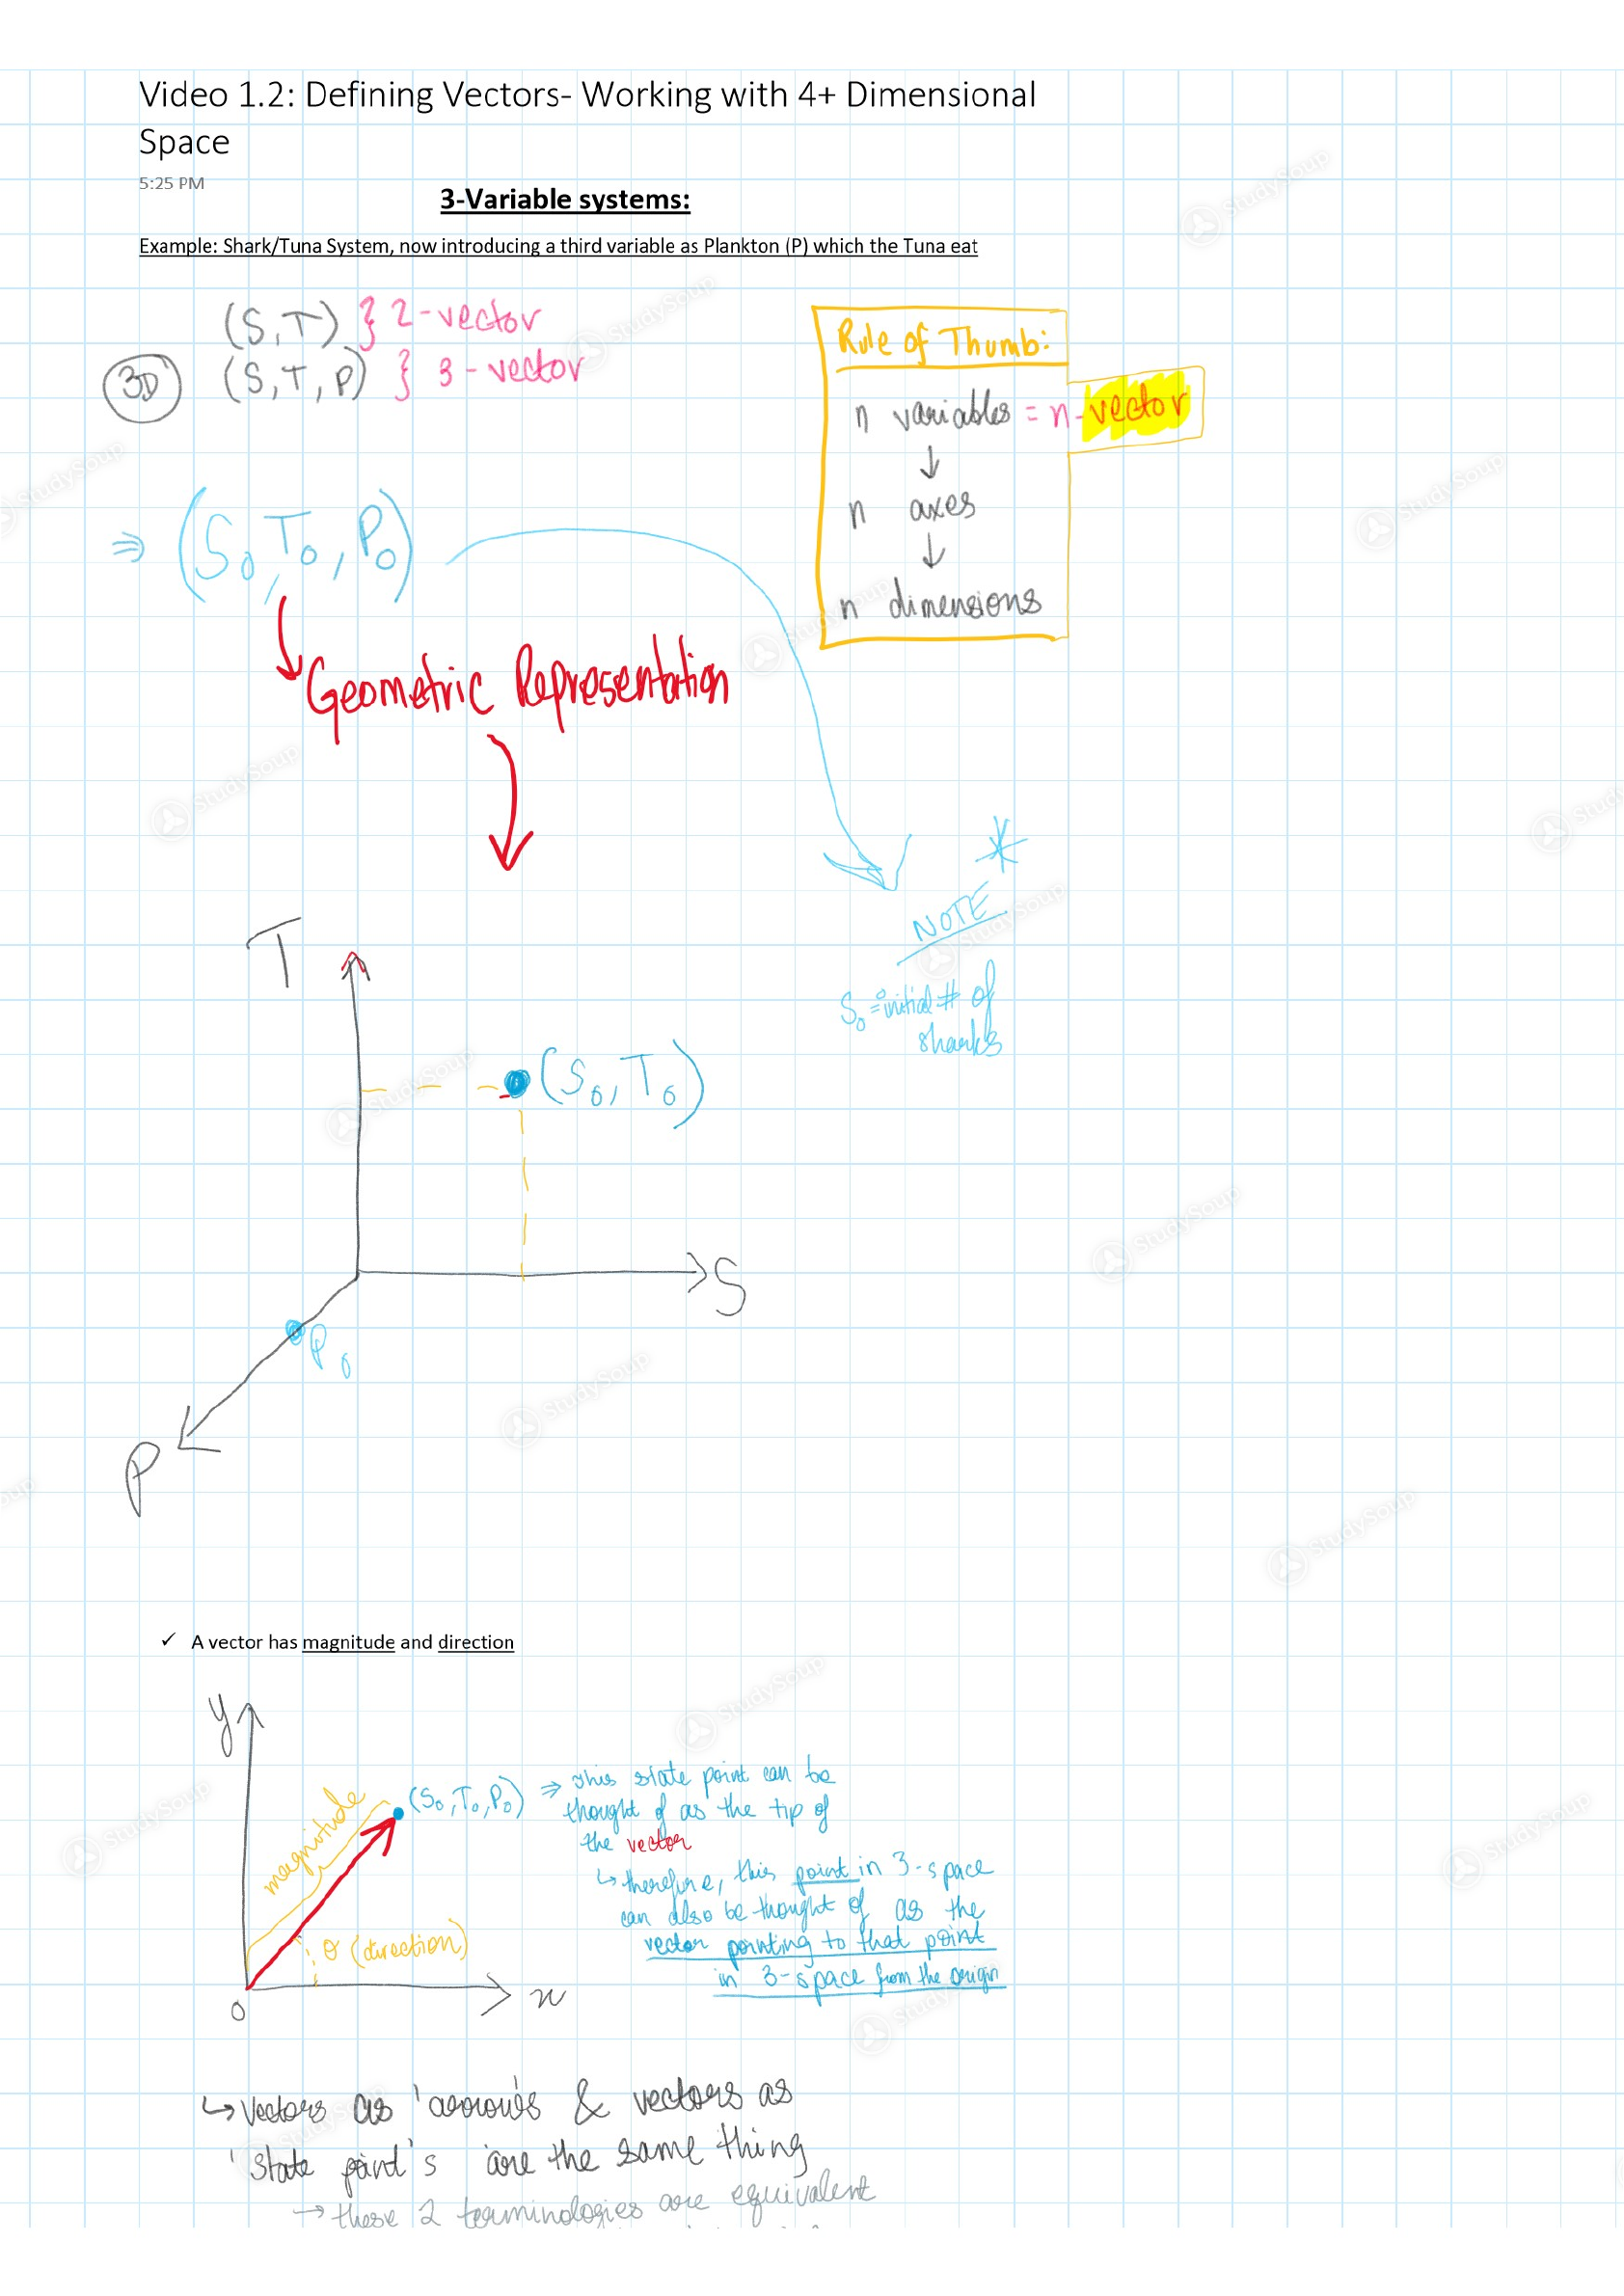 Video 1.2: Defining Vectors- Working with 4+ Dimensional
Space
5:25 PM
3-Variable systems:
Example: Shark/Tuna System, now introducing a third variable as Plankton (P) which the Tuna eat
(S,T) } 2-vector
3D (S,T,P) } 3-vector
Rule of Thumb:
n variables = n-vector
↓
n axes
↓
n dimensions
⇒ (S₀,T₀,P₀)
Geometric Representation
*
NOTE
S₀ = initial # of
sharks
T
(S₀,T₀)
S
P₀
P
✓ A vector has magnitude and direction
y
magnitude
(S₀,T₀,P₀) ⇒ This state point can be
thought of as the tip of
the vector
↳ therefore, this point in 3-space
can also be thought of as the
vector pointing to that point
in 3-space from the origin
θ (direction)
0
x
↳ Vectors as 'arrow's & vectors as
'state point's are the same thing
→ these 2 terminologies are equivalent
StudySoup